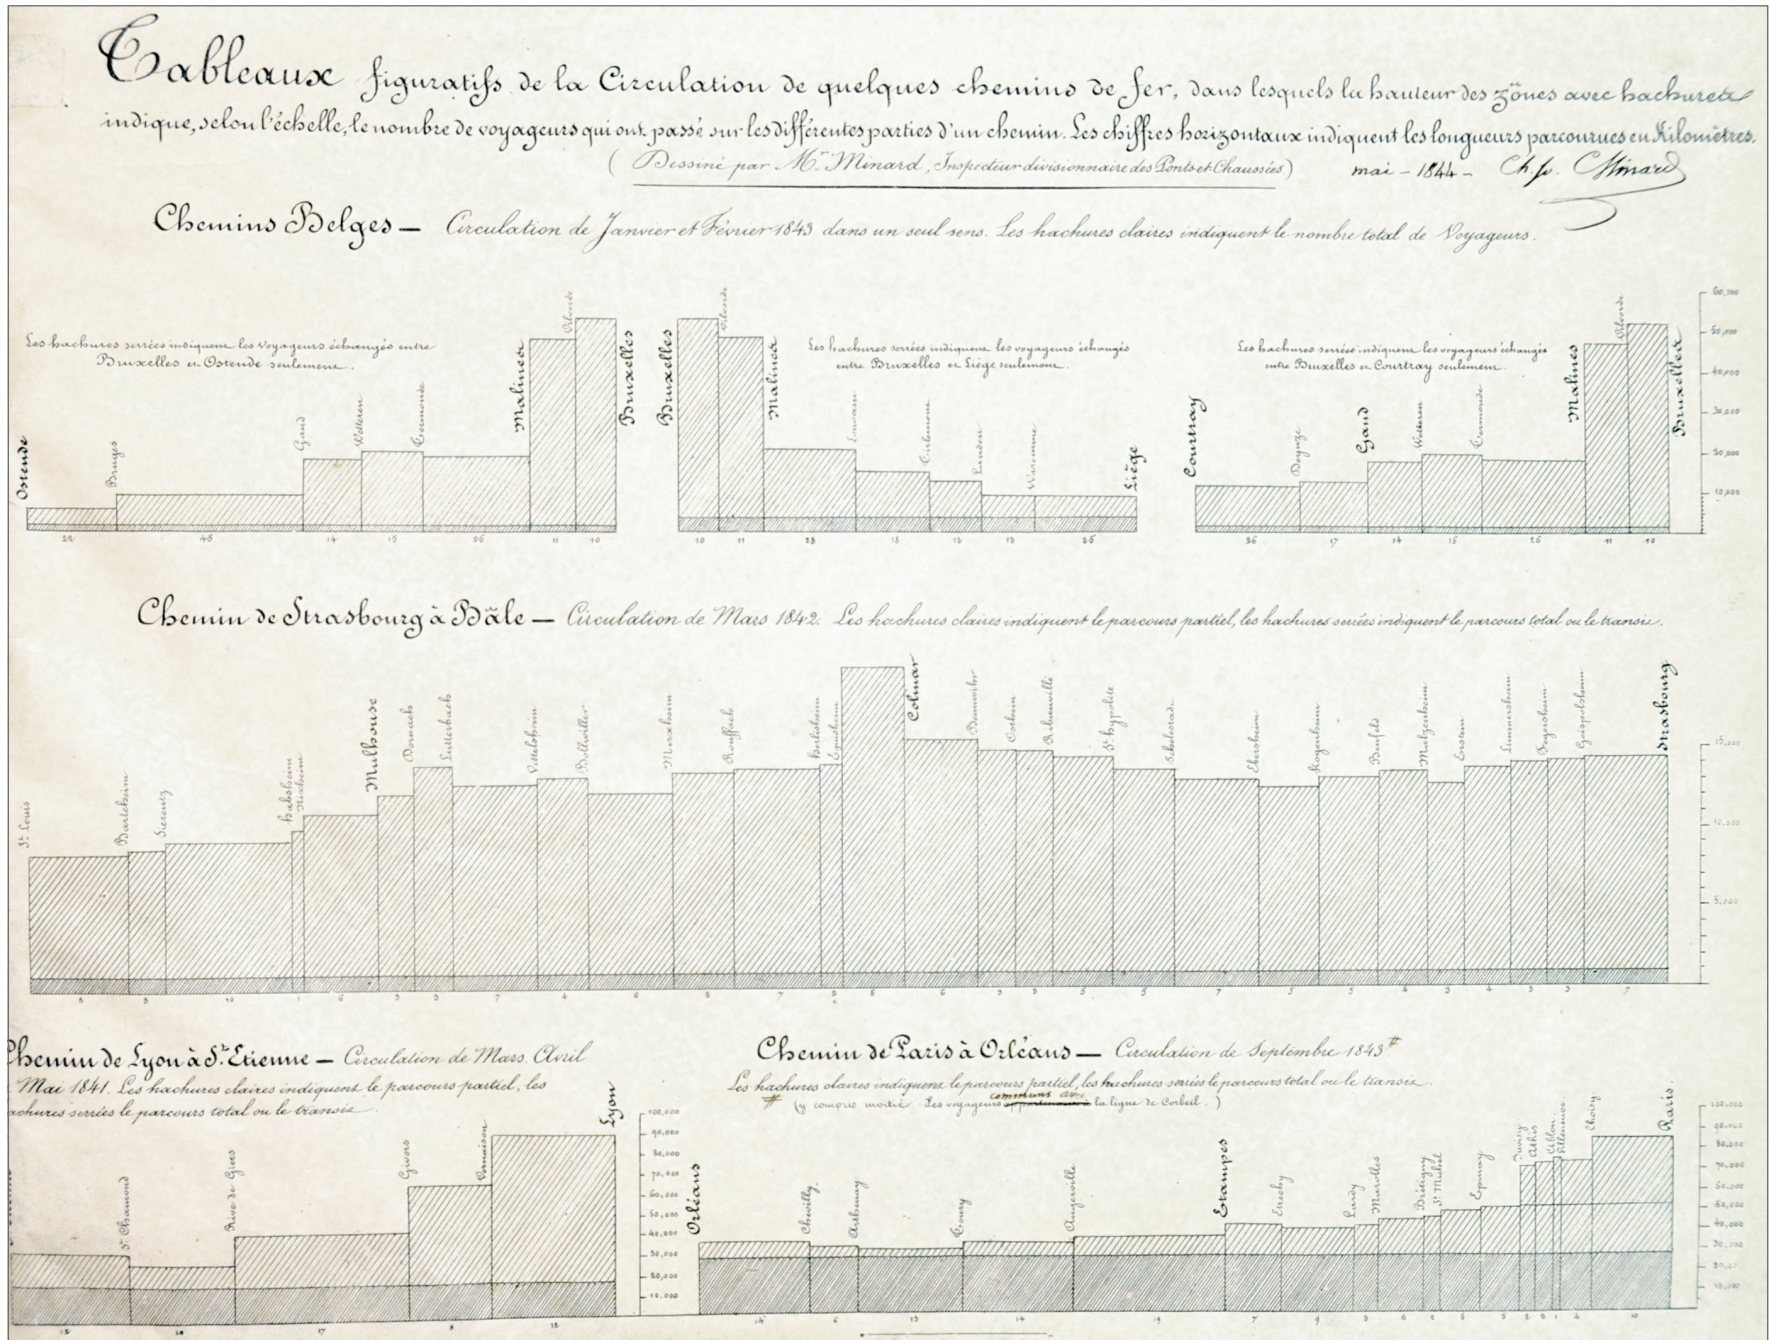 Tableaux figuratifs de la Circulation de quelques chemins de fer, dans lesquels la hauteur des zônes avec hachures
indique, selon l'échelle, le nombre de voyageurs qui ont passé sur les différentes parties d'un chemin. Les chiffres horizontaux indiquent les longueurs parcourues en Kilomètres.
( Dessiné par Mr. Minard, Inspecteur divisionnaire des Ponts et Chaussées ) mai - 1844 - Ch. Minard
Chemins Belges — Circulation de Janvier et Février 1843 dans un seul sens. Les hachures claires indiquent le nombre total de Voyageurs.
Les hachures serrées indiquent les voyageurs échangés entre
Bruxelles et Ostende seulement.
Ostende Bruges Gand Wetteren Termonde Malines Vilvorde Bruxelles
22 45 14 15 26 11 10
Les hachures serrées indiquent les voyageurs échangés
entre Bruxelles et Liége seulement.
Bruxelles Vilvorde Malines Louvain Tirlemont Landen Waremme Liège
10 11 23 18 13 13 25
Les hachures serrées indiquent les voyageurs échangés
entre Bruxelles et Courtray seulement.
Courtray Deynze Gand Wetteren Termonde Malines Vilvorde Bruxelles
26 17 14 15 26 11 10
60,000
50,000
40,000
30,000
20,000
10,000
Chemin de Strasbourg à Bâle — Circulation de Mars 1842. Les hachures claires indiquent le parcours partiel, les hachures serrées indiquent le parcours total ou le transit.
St. Louis Bartenheim Sierentz Habsheim Rixheim Mulhouse Dornach Lutterbach Wittelsheim Bollwiller Merxheim Rouffach Herlisheim Eguisheim Colmar Bennwihr Ostheim Ribeauville St. hypolite Schelestadt Ebersheim Kogenheim Benfeld Matzenheim Erstein Limmersheim Fegersheim Geispolsheim Strasbourg
15,000
10,000
5,000
Chemin de Lyon à St. Etienne — Circulation de Mars, Avril
Mai 1841. Les hachures claires indiquent le parcours partiel, les
achures serrées le parcours total ou le transit.
St. Chamond Rive de Giers Givors Vernaison Lyon
100,000
90,000
80,000
70,000
60,000
50,000
40,000
30,000
20,000
10,000
Chemin de Paris à Orléans — Circulation de Septembre 1843 #
Les hachures claires indiquent le parcours partiel, les hachures serrées le parcours total ou le transit.
# (y compris moitié des voyageurs communs avec la ligne de Corbeil.)
Orléans Chevilly Arthenay Toury Angerville Etampes Etrechy Lardy Marolles Brétigny St. Michel Epinay Juvisy Athis Ablon Villeneuve Choisy Paris
100,000
90,000
80,000
70,000
60,000
50,000
40,000
30,000
20,000
10,000